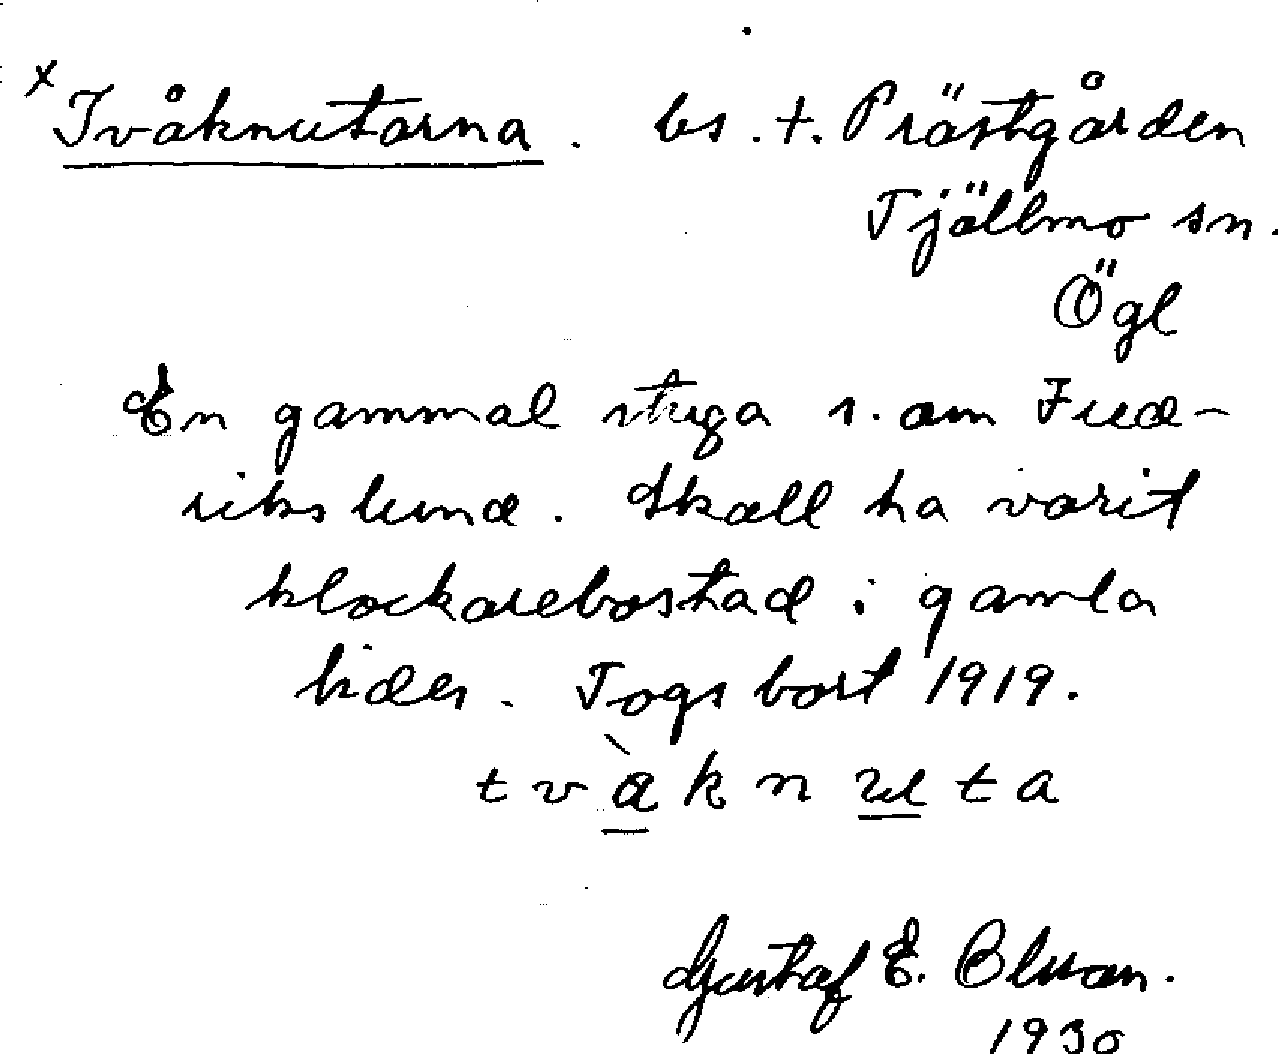 x Tvåknutarna. bs. t. Prästgården
Tjällmo sn.
Ögl
En gammal stuga s. om Fred-
rikslund. Skall ha varit
klockarebostad i gamla
tider. Togs bort 1919.
tvàknuta
Gustaf E.
1930